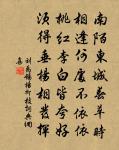 南陌東城春早時
相逢何處不依依
桃紅李白皆誇好
須得垂楊相發揮
劉禹錫楊柳枝詞典湖